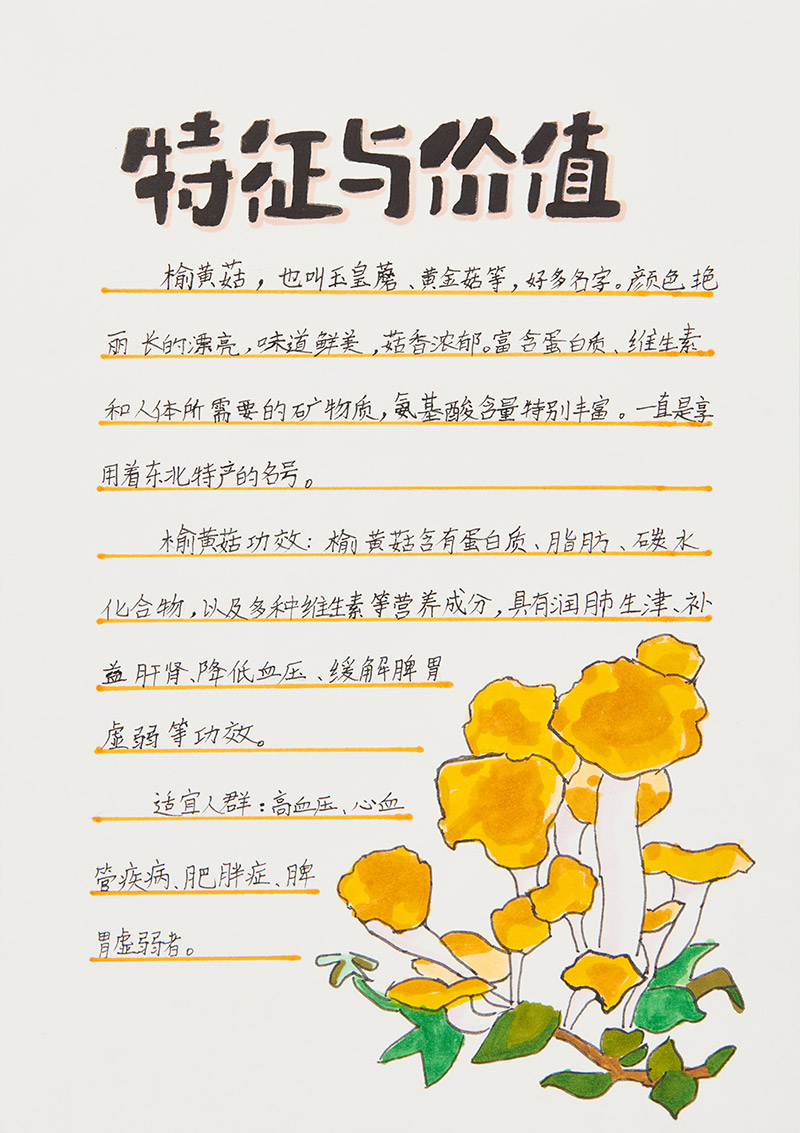 特征与价值
榆黄菇，也叫玉皇蘑、黄金菇等，好多名字。颜色艳
丽长的漂亮，味道鲜美，菇香浓郁。富含蛋白质、维生素
和人体所需要的矿物质，氨基酸含量特别丰富。一直是享
用着东北特产的名号。
榆黄菇功效：榆黄菇含有蛋白质、脂肪、碳水
化合物，以及多种维生素等营养成分，具有润肺生津、补
益肝肾、降低血压、缓解脾胃
虚弱等功效。
适宜人群：高血压、心血
管疾病、肥胖症、脾
胃虚弱者。